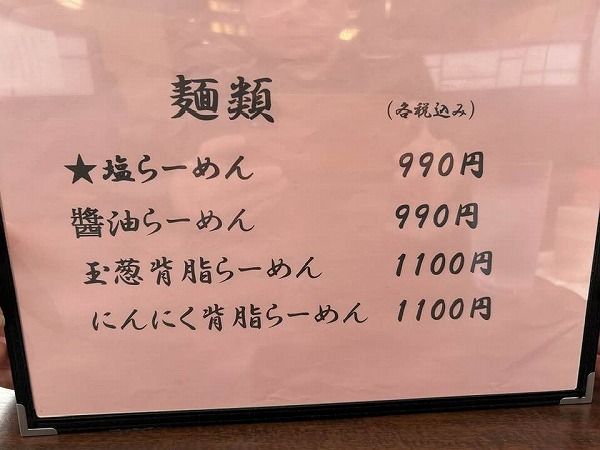 麺類 (各税込み)
★塩らーめん 990円
醬油らーめん 990円
玉葱背脂らーめん 1100円
にんにく背脂らーめん 1100円